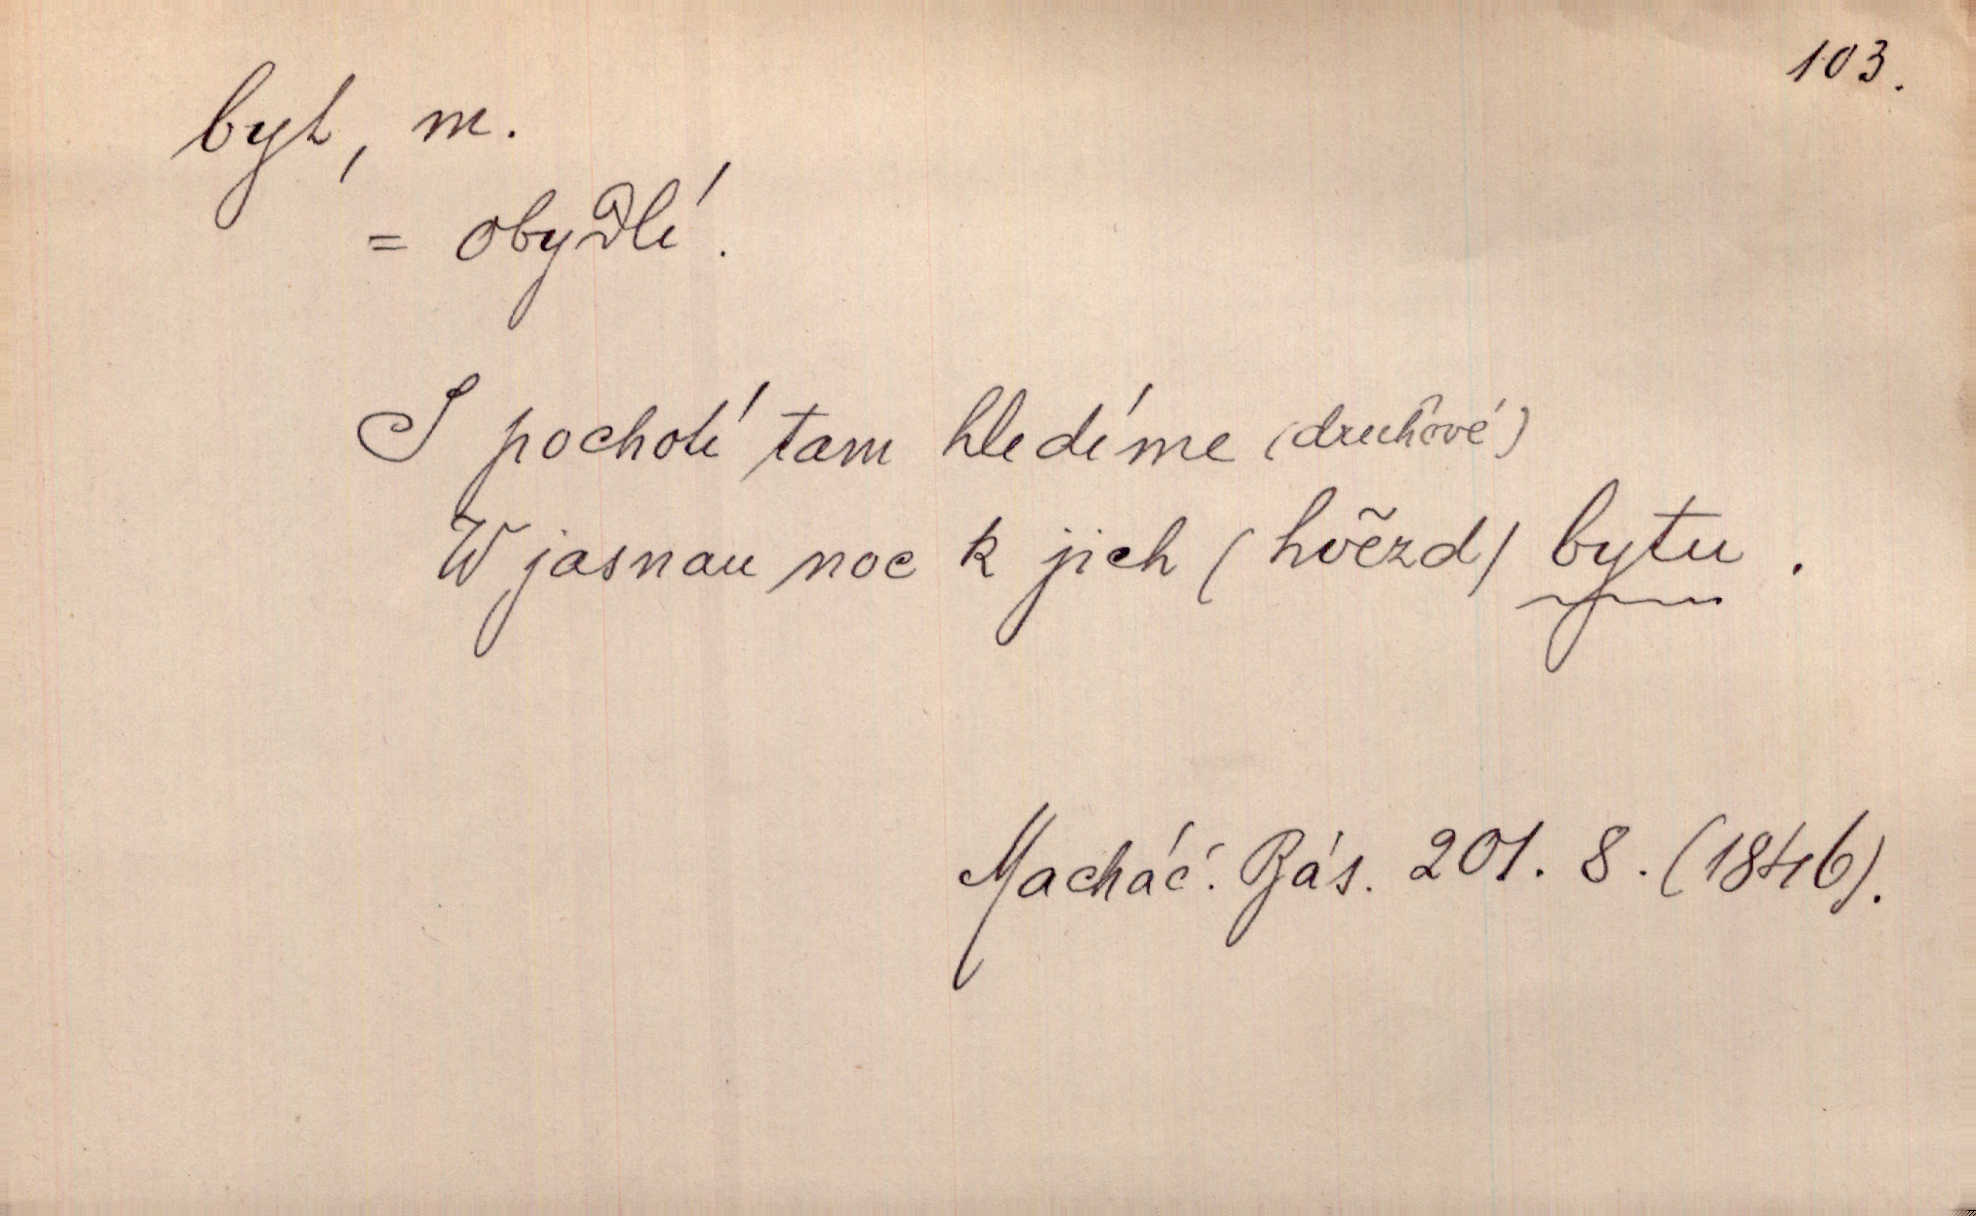 103.
byt, m.
= obydlí.
I pocholí tam hledíme (druhové)
W jasnau noc k jich (hvězd) bytu.
Macháč. Bás. 201. 8. (1846).